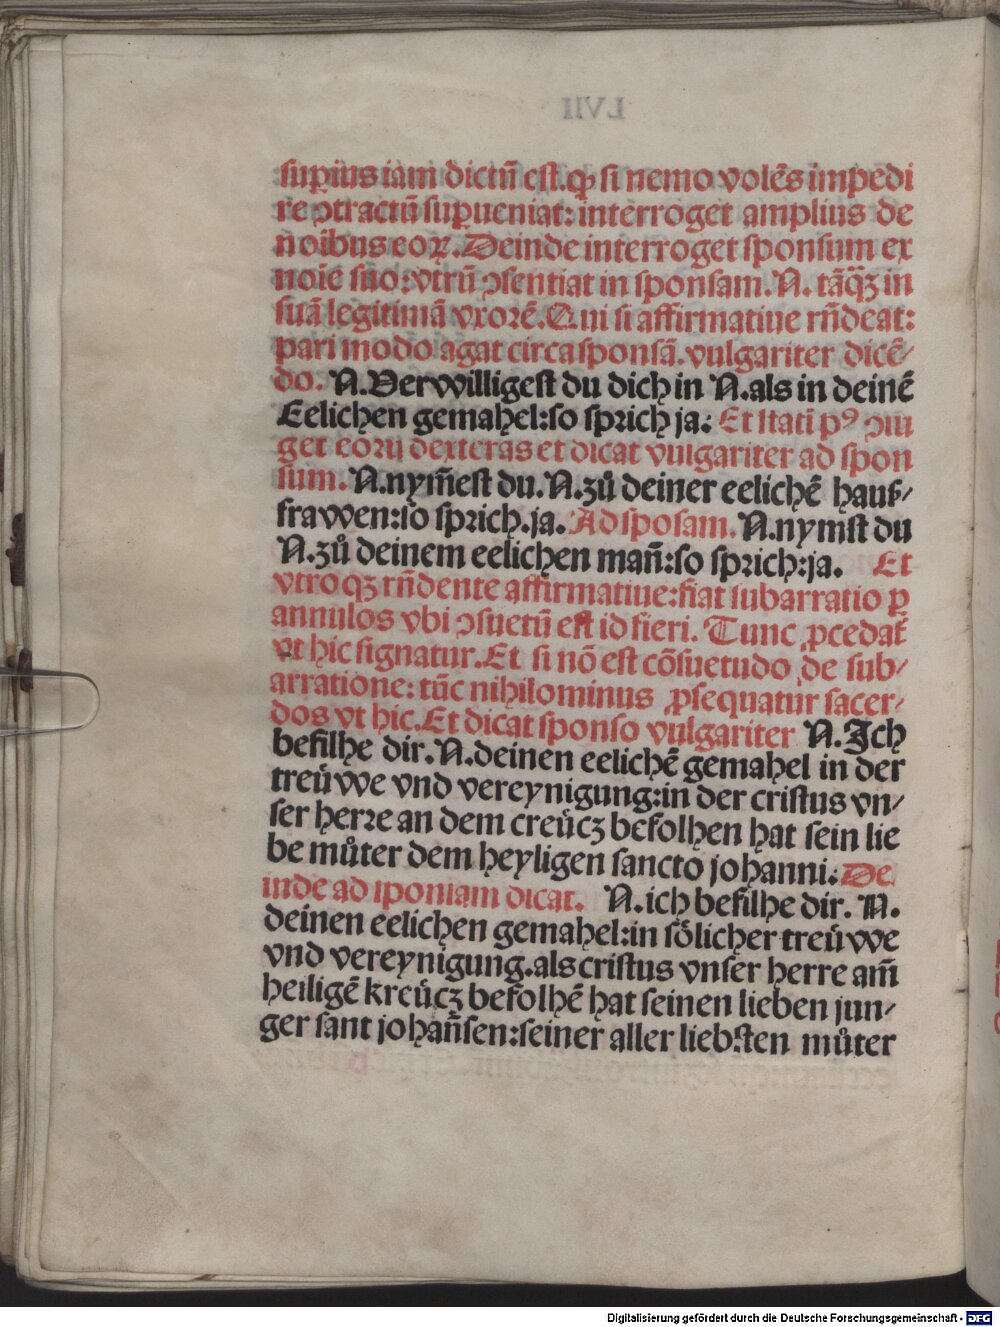 LVII
sup̲ius iam dictū est. ꝙ si nemo volēs impedi
re ↄtractū sup̲ueniat: interroget amplius de
noībus eoꝝ. Deinde interroget sponsum ex
noīe suo: vtrū ↄsentiat in sponsam. N. tāq̄ꝫ in
suā legitimā vxorē. Qui si affirmatiue rn̄deat:
pari modo agat circa sponsā. vulgariter dicē⸗
do. N. Verwilligest du dich in N. als in deinē
Eelichen gemahel: so sprich ja: Et statī pꝰ ↄiu
get eorū dexteras et dicat vulgariter ad spon
sum. N. nym̄est du. N. zů deiner eelichē hauſ⸗
frawen: so sprich. ja. Ad sposam. N. nymst du
N. zů deinem eelichen man̄: so sprich: ja. Et
vtroqꝫ rn̄dente affirmatiue: fiat subarratio ꝑ
annulos vbi ↄsuetū est id fieri. Tunc ꝓcedat̄
vt hic signatur. Et si nō est cōsuetudo de sub⸗
arratione: tūc nihilominus ꝓsequatur sacer⸗
dos vt hic. Et dicat sponso vulgariter N. Ich
befilhe dir. N. deinen eelichē gemahel in der
treüwe vnd vereynigung: in der cristus vn⸗
ser herre an dem creücz befolhen hat sein lie
be můter dem heyligen sancto johanni: De
inde ad sponsam dicat. N. ich befilhe dir. N.
deinen eelichen gemahel: in sölicher treüwe
vnd vereynigung. als cristus vnser herre am̄
heiligē kreücz befolhē hat seinen lieben jun⸗
ger sant johan̄sen: seiner aller liebsten můter
Digitalisierung gefördert durch die Deutsche Forschungsgemeinschaft - DFG